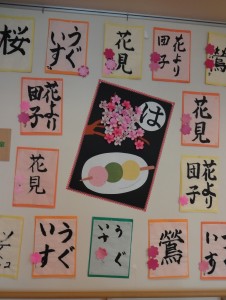 桜
うぐ
いす
花見
花より
団子
鶯
花より
団子
は
花見
花見
花より
団子
うぐ
いす
うぐ
いす
鶯
うぐ
いす